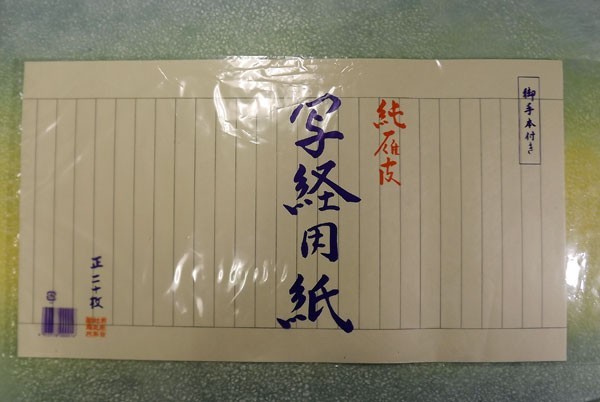 御手本付き
純雁皮
写経用紙
正二十枚